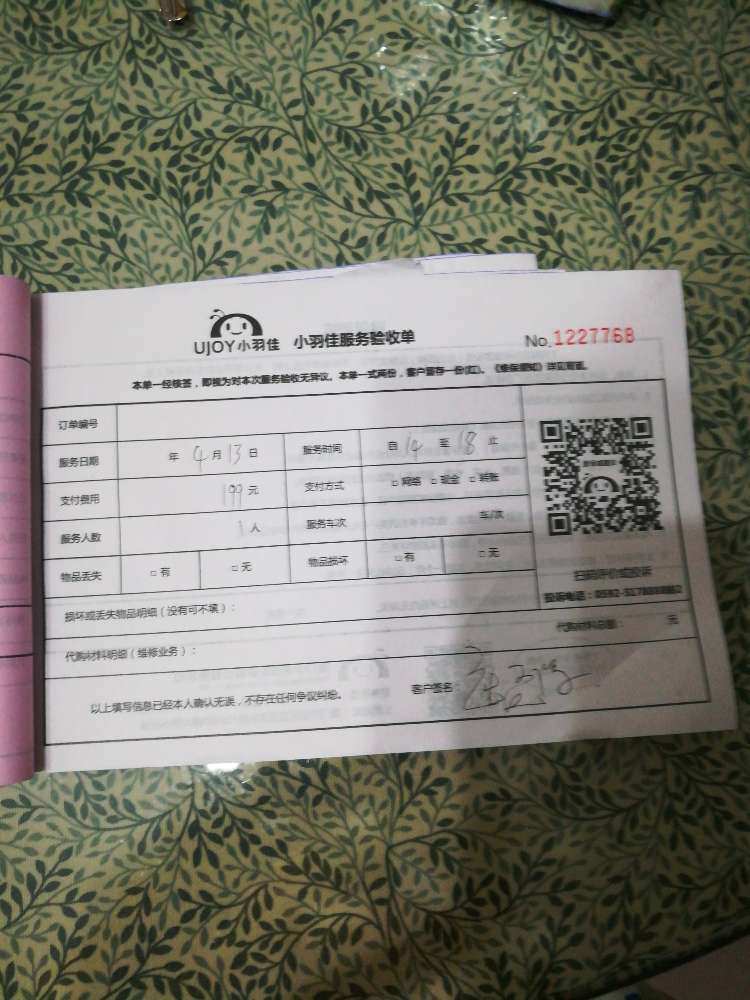 UJOY小羽佳 小羽佳服务验收单 No.1227768
本单一经核签，即视为对本次服务验收无异议。本单一式两份，客户留存一份(红)。《维保须知》详见背面。
订单编号
服务日期 年 4 月 13 日 服务时间 自 14 至 18 止
支付费用 199 元 支付方式 □ 网络 □ 现金 □ 转账
服务人数 1 人 服务车次 车/次
物品丢失 □ 有 □ 无 物品损坏 □ 有 □ 无
扫码评价或投诉
损坏或丢失物品明细（没有可不填）：
代购材料明细（维修业务）： 代购材料总额： 元
以上填写信息已经本人确认无误，不存在任何争议纠纷。 客户签名：